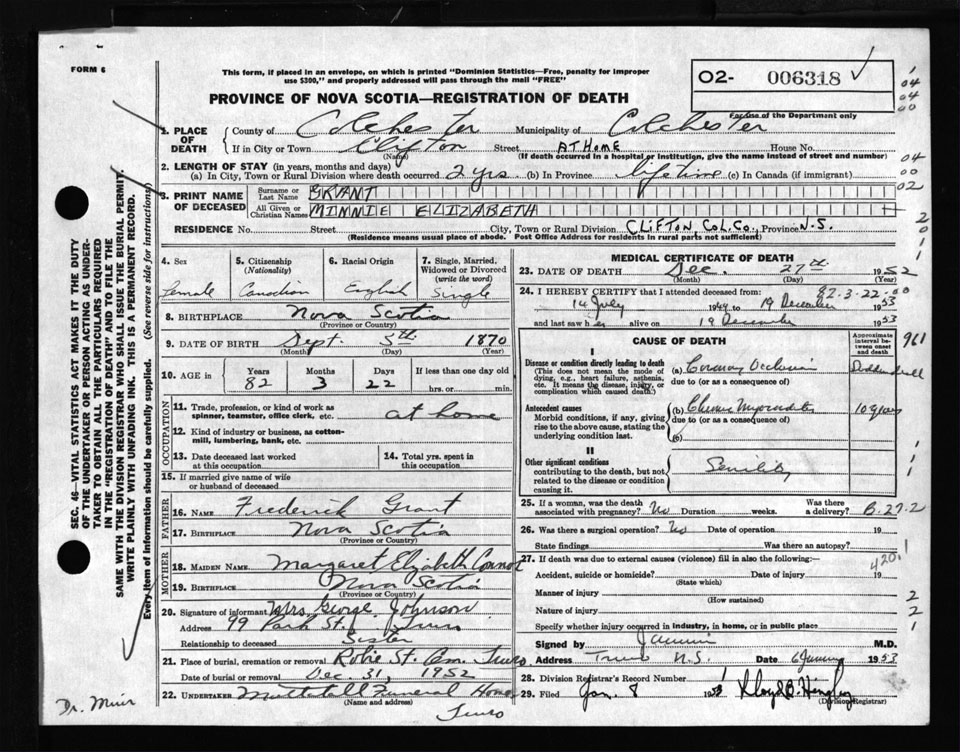 FORM 6
This form, if placed in an envelope, on which is printed "Dominion Statistics—Free, penalty for improper
use $300," and properly addressed will pass through the mail "FREE"
O2- 006318
For use of the Department only
PROVINCE OF NOVA SCOTIA—REGISTRATION OF DEATH
04
00
04
00
02
2
0
1
1
1. PLACE OF DEATH
County of Colchester Municipality of Colchester
If in City or Town Clifton Street AT HOME House No.
(Name) (If death occurred in a hospital or institution, give the name instead of street and number)
2. LENGTH OF STAY (in years, months and days)
(a) In City, Town or Rural Division where death occurred 2 yrs (b) In Province lifetime (c) In Canada (if immigrant)
3. PRINT NAME OF DECEASED
Surname or Last Name GRANT
All Given or Christian Names MINNIE ELIZABETH
RESIDENCE No. Street City, Town or Rural Division CLIFTON COL. CO. Province N.S.
(Residence means usual place of abode. Post Office Address for residents in rural parts not sufficient)
4. Sex
Female
5. Citizenship
(Nationality)
Canadian
6. Racial Origin
English
7. Single, Married,
Widowed or Divorced
(write the word)
Single
8. BIRTHPLACE Nova Scotia
(Province or Country)
9. DATE OF BIRTH Sept. 5th 1870
(Month) (Day) (Year)
10. AGE in
Years Months Days If less than one day old
82 3 22 hrs. or min.
OCCUPATION
11. Trade, profession, or kind of work as
spinner, teamster, office clerk, etc. at home
12. Kind of industry or business, as cotton-
mill, lumbering, bank, etc.
13. Date deceased last worked
at this occupation
14. Total yrs. spent in
this occupation
15. If married give name of wife
or husband of deceased
FATHER
16. NAME Frederick Grant
17. BIRTHPLACE Nova Scotia
(Province or Country)
MOTHER
18. MAIDEN NAME Margaret Elizabeth Connor
19. BIRTHPLACE Nova Scotia
(Province or Country)
20. Signature of informant Mrs. George Johnson
Address 99 Park St. Truro
Relationship to deceased Sister
21. Place of burial, cremation or removal Robie St. Cem. Truro
Date of burial or removal Dec. 31, 1952
22. UNDERTAKER Mattatall Funeral Home
(Name and address)
Truro
MEDICAL CERTIFICATE OF DEATH
23. DATE OF DEATH Dec. 27th 1952
(Month) (Day)
24. I HEREBY CERTIFY that I attended deceased from: 82-3-22-00
14 July 1949 to 19 December 1953
and last saw her alive on 19 December 1953
CAUSE OF DEATH
Approximate interval between onset and death
961
I
Disease or condition directly leading to death
(This does not mean the mode of
dying, e.g., heart failure, asthenia,
etc. It means the disease, injury, or
complication which caused death.)
(a) Coronary Occlusion
due to (or as a consequence of)
Antecedent causes
Morbid conditions, if any, giving
rise to the above cause, stating the
underlying condition last.
(b) Chronic Myocarditis 10 years
due to (or as a consequence of)
(c)
II
Other significant conditions
contributing to the death, but not
related to the disease or condition
causing it.
Senility
25. If a woman, was the death
associated with pregnancy? No Duration weeks. Was there
a delivery? B-27-2
26. Was there a surgical operation? No Date of operation 19
State findings Was there an autopsy?
27. If death was due to external causes (violence) fill in also the following:— 420.1
Accident, suicide or homicide? Date of injury 19
(State which)
Manner of injury
(How sustained)
Nature of injury
Specify whether injury occurred in industry, in home, or in public place
Signed by M.D.
Address Truro N.S. Date 6 January 1953
28. Division Registrar's Record Number 1
29. Filed Jan. 8 1953 Lloyd B. Hingley
(Division Registrar)
SEC. 46—VITAL STATISTICS ACT MAKES IT THE DUTY
OF THE UNDERTAKER OR PERSON ACTING AS UNDER-
TAKER TO OBTAIN ALL THE PARTICULARS REQUIRED
IN THE "REGISTRATION OF DEATH" AND TO FILE THE
SAME WITH THE DIVISION REGISTRAR WHO SHALL ISSUE THE BURIAL PERMIT.
WRITE PLAINLY WITH UNFADING INK. THIS IS A PERMANENT RECORD.
Every item of information should be carefully supplied. (See reverse side for instructions)
Dr. Muir